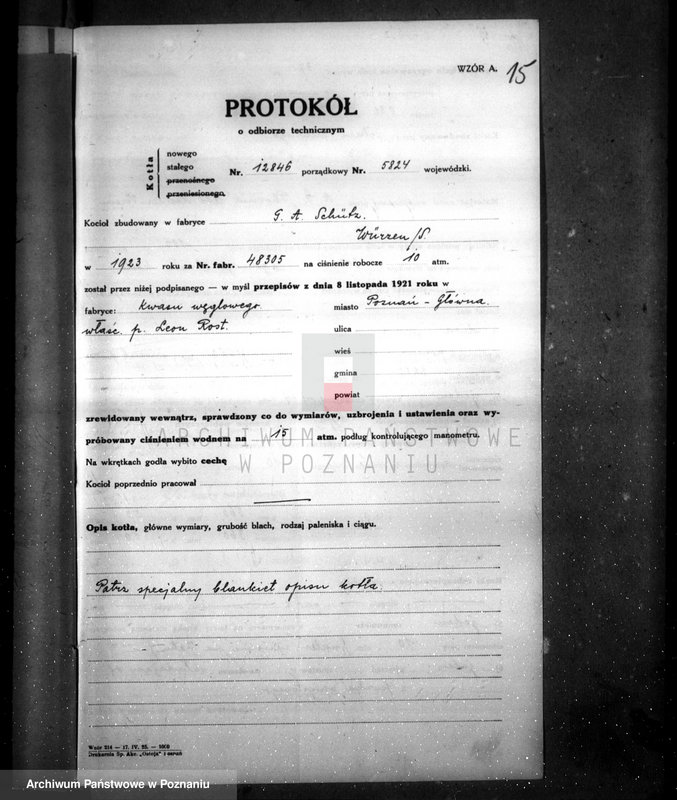 WZÓR A. 15
PROTOKÓŁ
o odbiorze technicznym
Kotła
nowego
stałego
przenośnego
przeniesionego
Nr. 12846 porządkowy Nr. 5824 wojewódzki.
Kocioł zbudowany w fabryce G. A. Schütz.
Würzen /S.
w 1923 roku za Nr. fabr. 48305 na ciśnienie robocze 10 atm.
został przez niżej podpisanego — w myśl przepisów z dnia 8 listopada 1921 roku w
fabryce: Kwasu węglowego. miasto Poznań - Główna.
właśc. p. Leon Rost. ulica
wieś
gmina
powiat
zrewidowany wewnątrz, sprawdzony co do wymiarów, uzbrojenia i ustawienia oraz wy-
próbowany ciśnieniem wodnem na 15 atm. podług kontrolującego manometru.
ARCHIWUM PAŃSTWOWE
W POZNANIU
Na wkrętkach godła wybito cechę
Kocioł poprzednio pracował
Opis kotła, główne wymiary, grubość blach, rodzaj paleniska i ciągu.
Patrz specjalny blankiet opisu kotła.
Wzór 214 — 17. IV. 25. — 1000
Drukarnia Sp. Akc. „Ostoja"
Archiwum Państwowe w Poznaniu